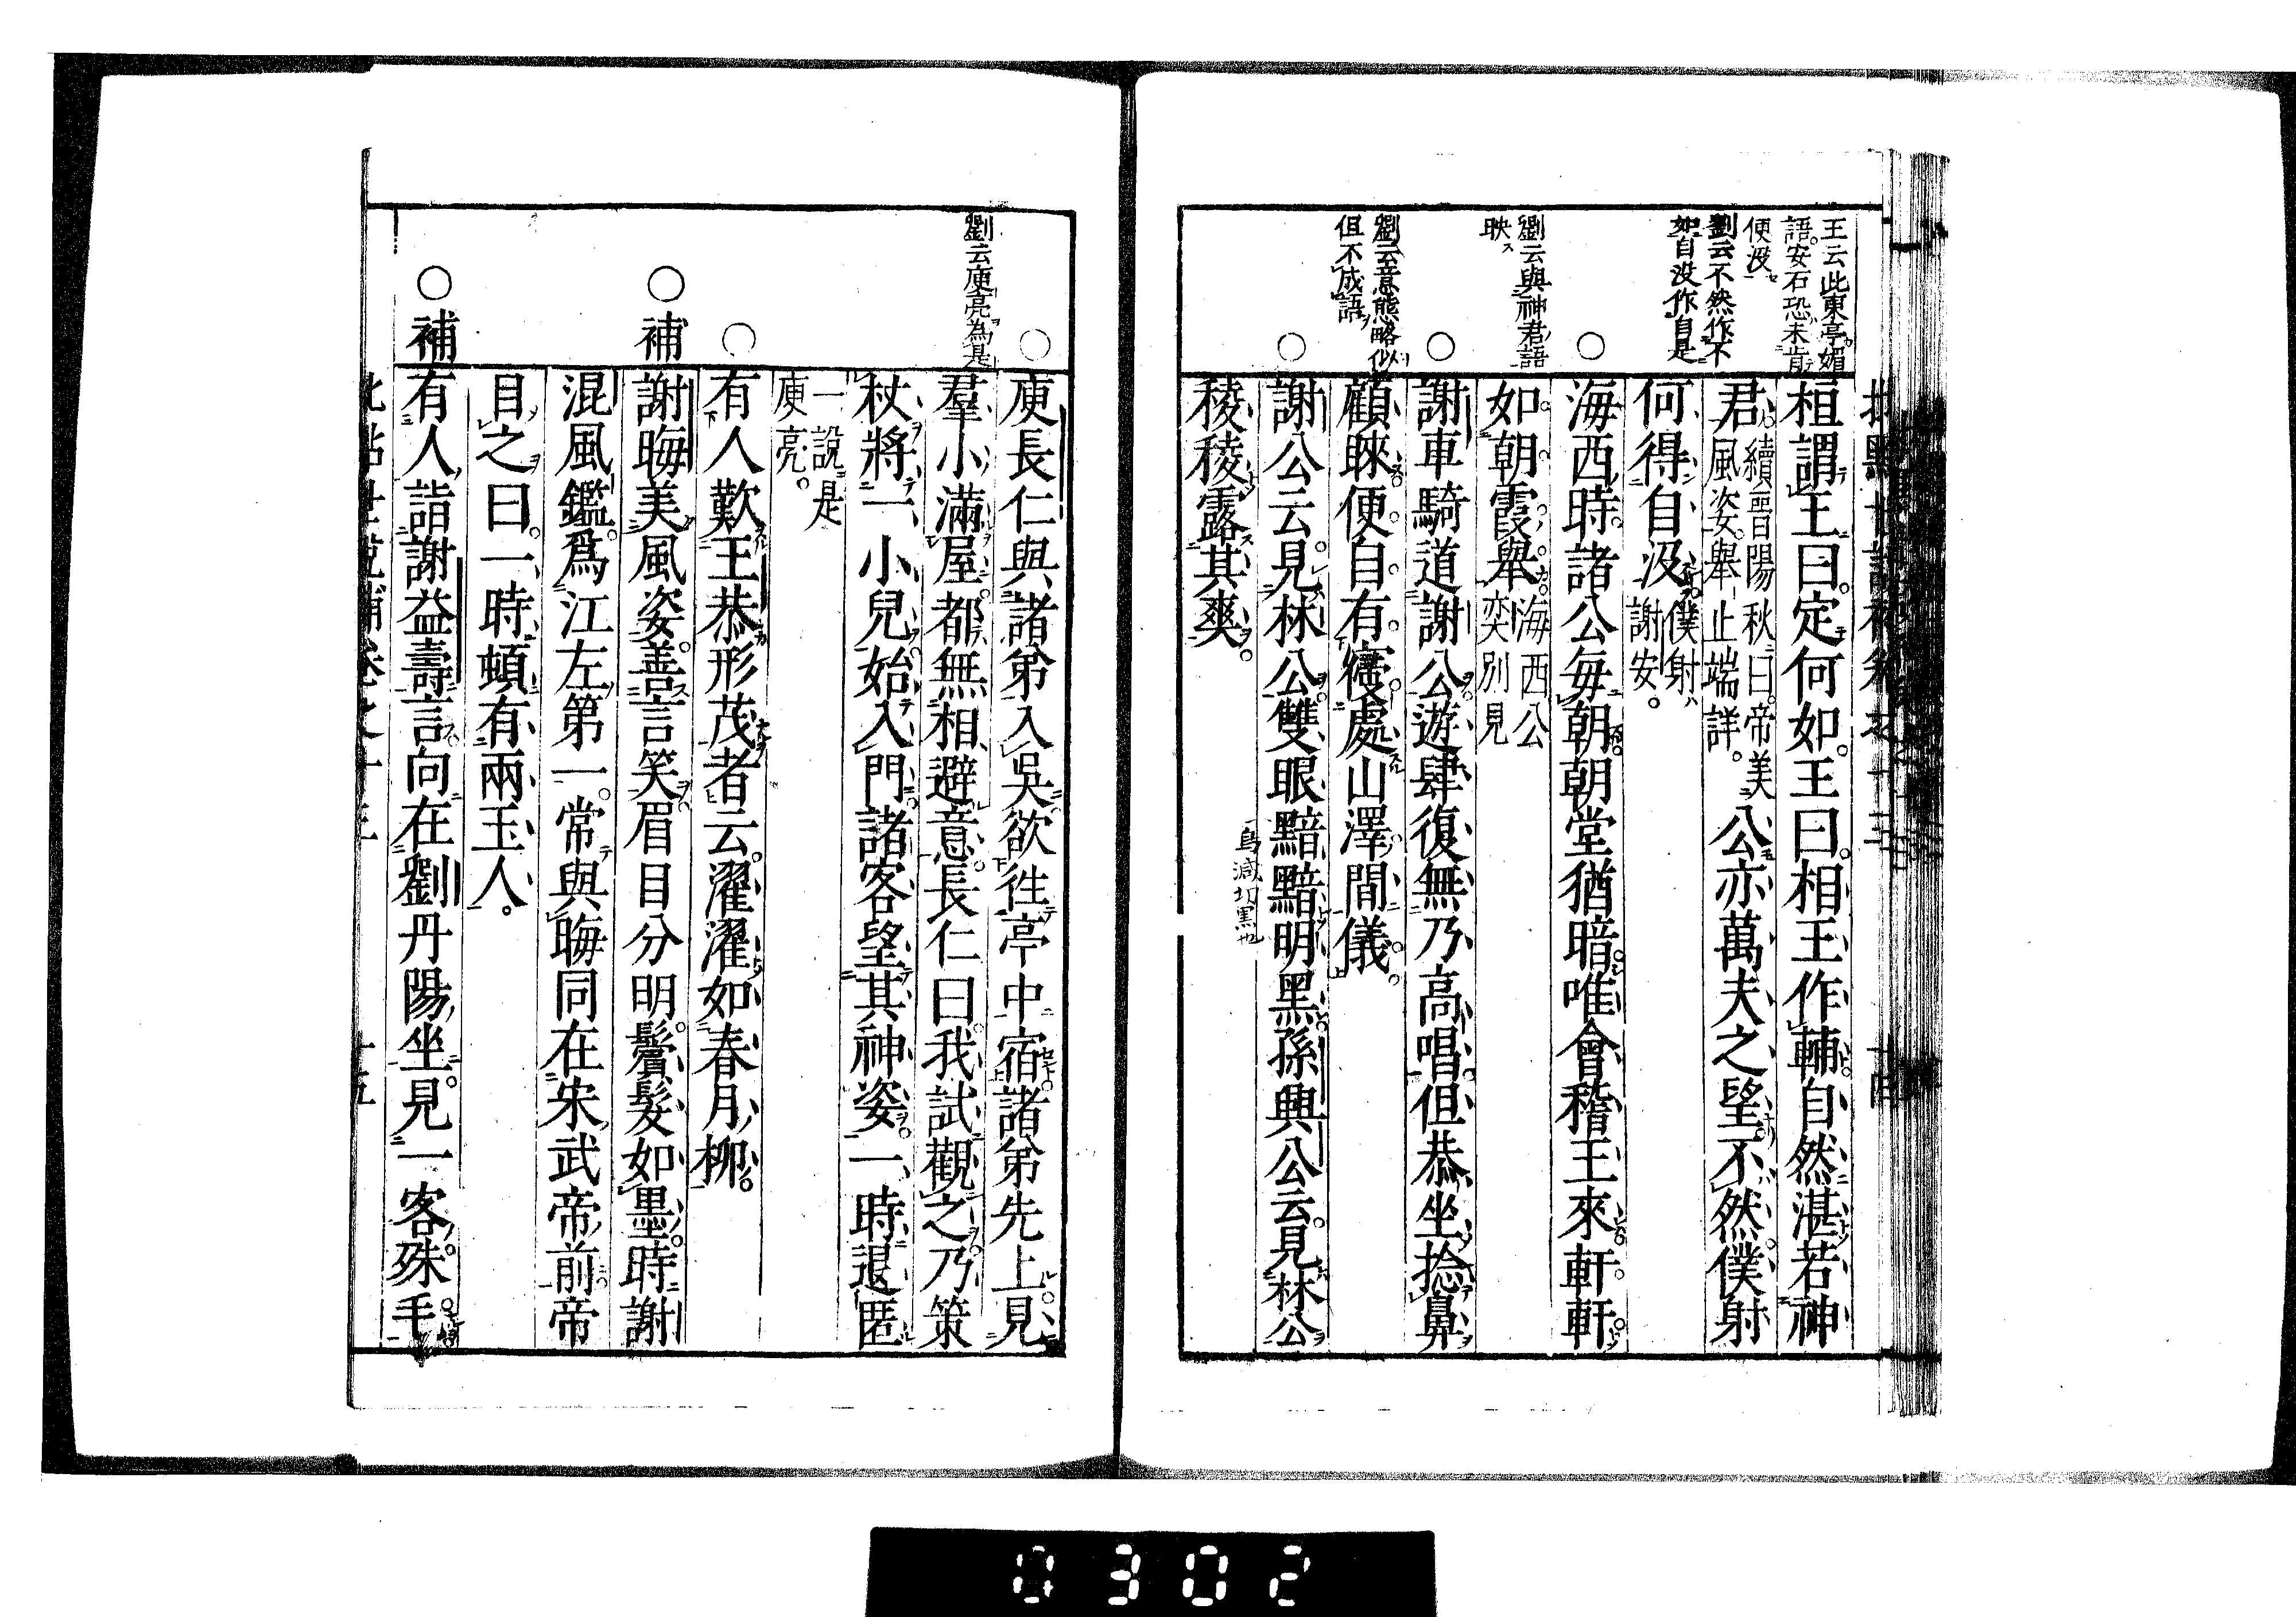 王云此東亭媚
語安石恐未肯
便没
劉云不然作不
如自没作自是
劉云與神君語
映
劉云意態略似
但不成語
桓謂王曰定何如王曰相王作輔自然湛若神
君續晋陽秋曰帝美
風姿舉止端詳。公亦萬夫之望不然僕射
何得自汲僕射
謝安。
○海西時諸公毎朝朝堂猶暗唯會稽王來軒軒
如朝霞舉海西公
奕別見
○謝車騎道謝公遊肆復無乃高唱但恭坐捻鼻
顧睞便自有寢處山澤間儀
○謝公云見林公雙眼黯黯明黑孫興公云見林公
稜稜露其爽。
烏減切黒也
劉云庾亮為是
○庾長仁與諸弟入吳欲徃亭中宿諸弟先上見
羣小滿屋都無相避意長仁曰我試觀之乃策
杖將一小兒始入門諸客望其神姿一時退匿
一說是
庾亮。
○有人歎王恭形茂者云濯濯如春月柳。
○補謝晦美風姿善言笑眉目分明鬢髮如墨時謝
混風鑑爲江左第一常與晦同在宋武帝前帝
目之曰一時頓有兩玉人。
○補有人詣謝益壽言向在劉丹陽坐見一客殊毛
0302